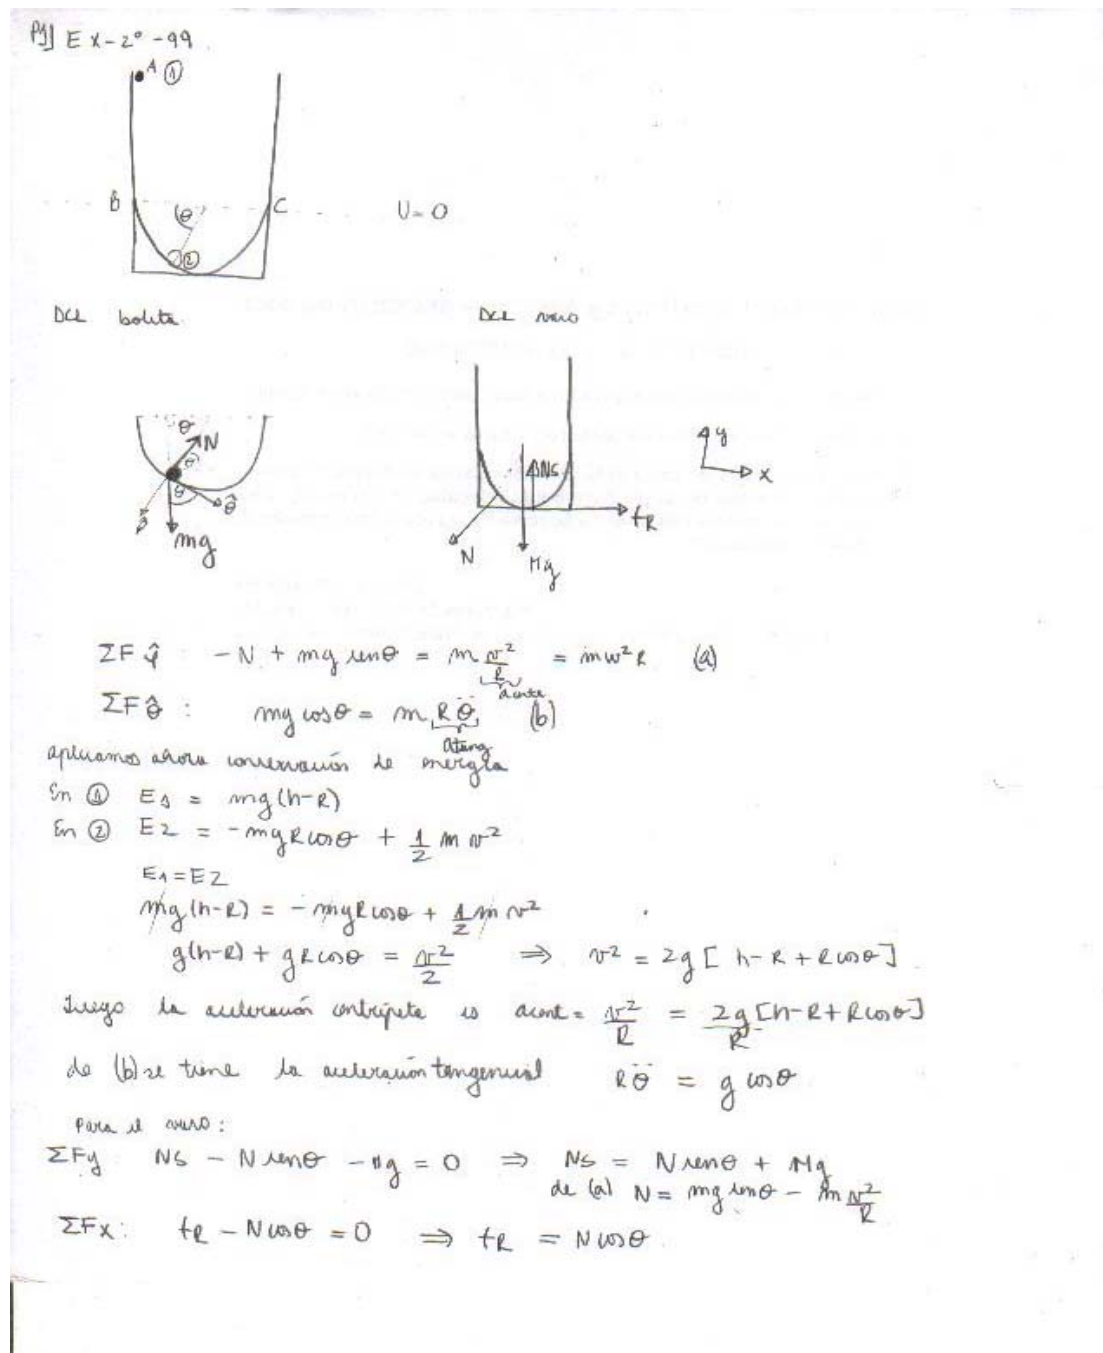 P1] EX-2°-99
A ①
B
θ
C
U=0
②
DCL bolita.
DCL vaso
θ
N
θ
θ
θ̂
ρ̂
mg
Ns
fR
N
Mg
y
x
ΣF ρ̂ : -N + mg senθ = m v²/R = mω²R (a)
acent
ΣF θ̂ : mg cosθ = m Rθ̈ (b)
atang
aplicamos ahora conservación de energía
En ① E1 = mg(h-R)
En ② E2 = -mgRcosθ + 1/2 m v²
E1=E2
mg(h-R) = -mgRcosθ + 1/2 m v²
g(h-R) + gRcosθ = v²/2 ⇒ v² = 2g[h-R+Rcosθ]
Luego la aceleración centrípeta es acent = v²/R = 2g/R [h-R+Rcosθ]
de (b) se tiene la aceleración tangencial Rθ̈ = g cosθ
Para el vaso:
ΣFy NS - N senθ - Mg = 0 ⇒ NS = N senθ + Mg
de (a) N = mg senθ - m v²/R
ΣFx: fR - N cosθ = 0 ⇒ fR = N cosθ